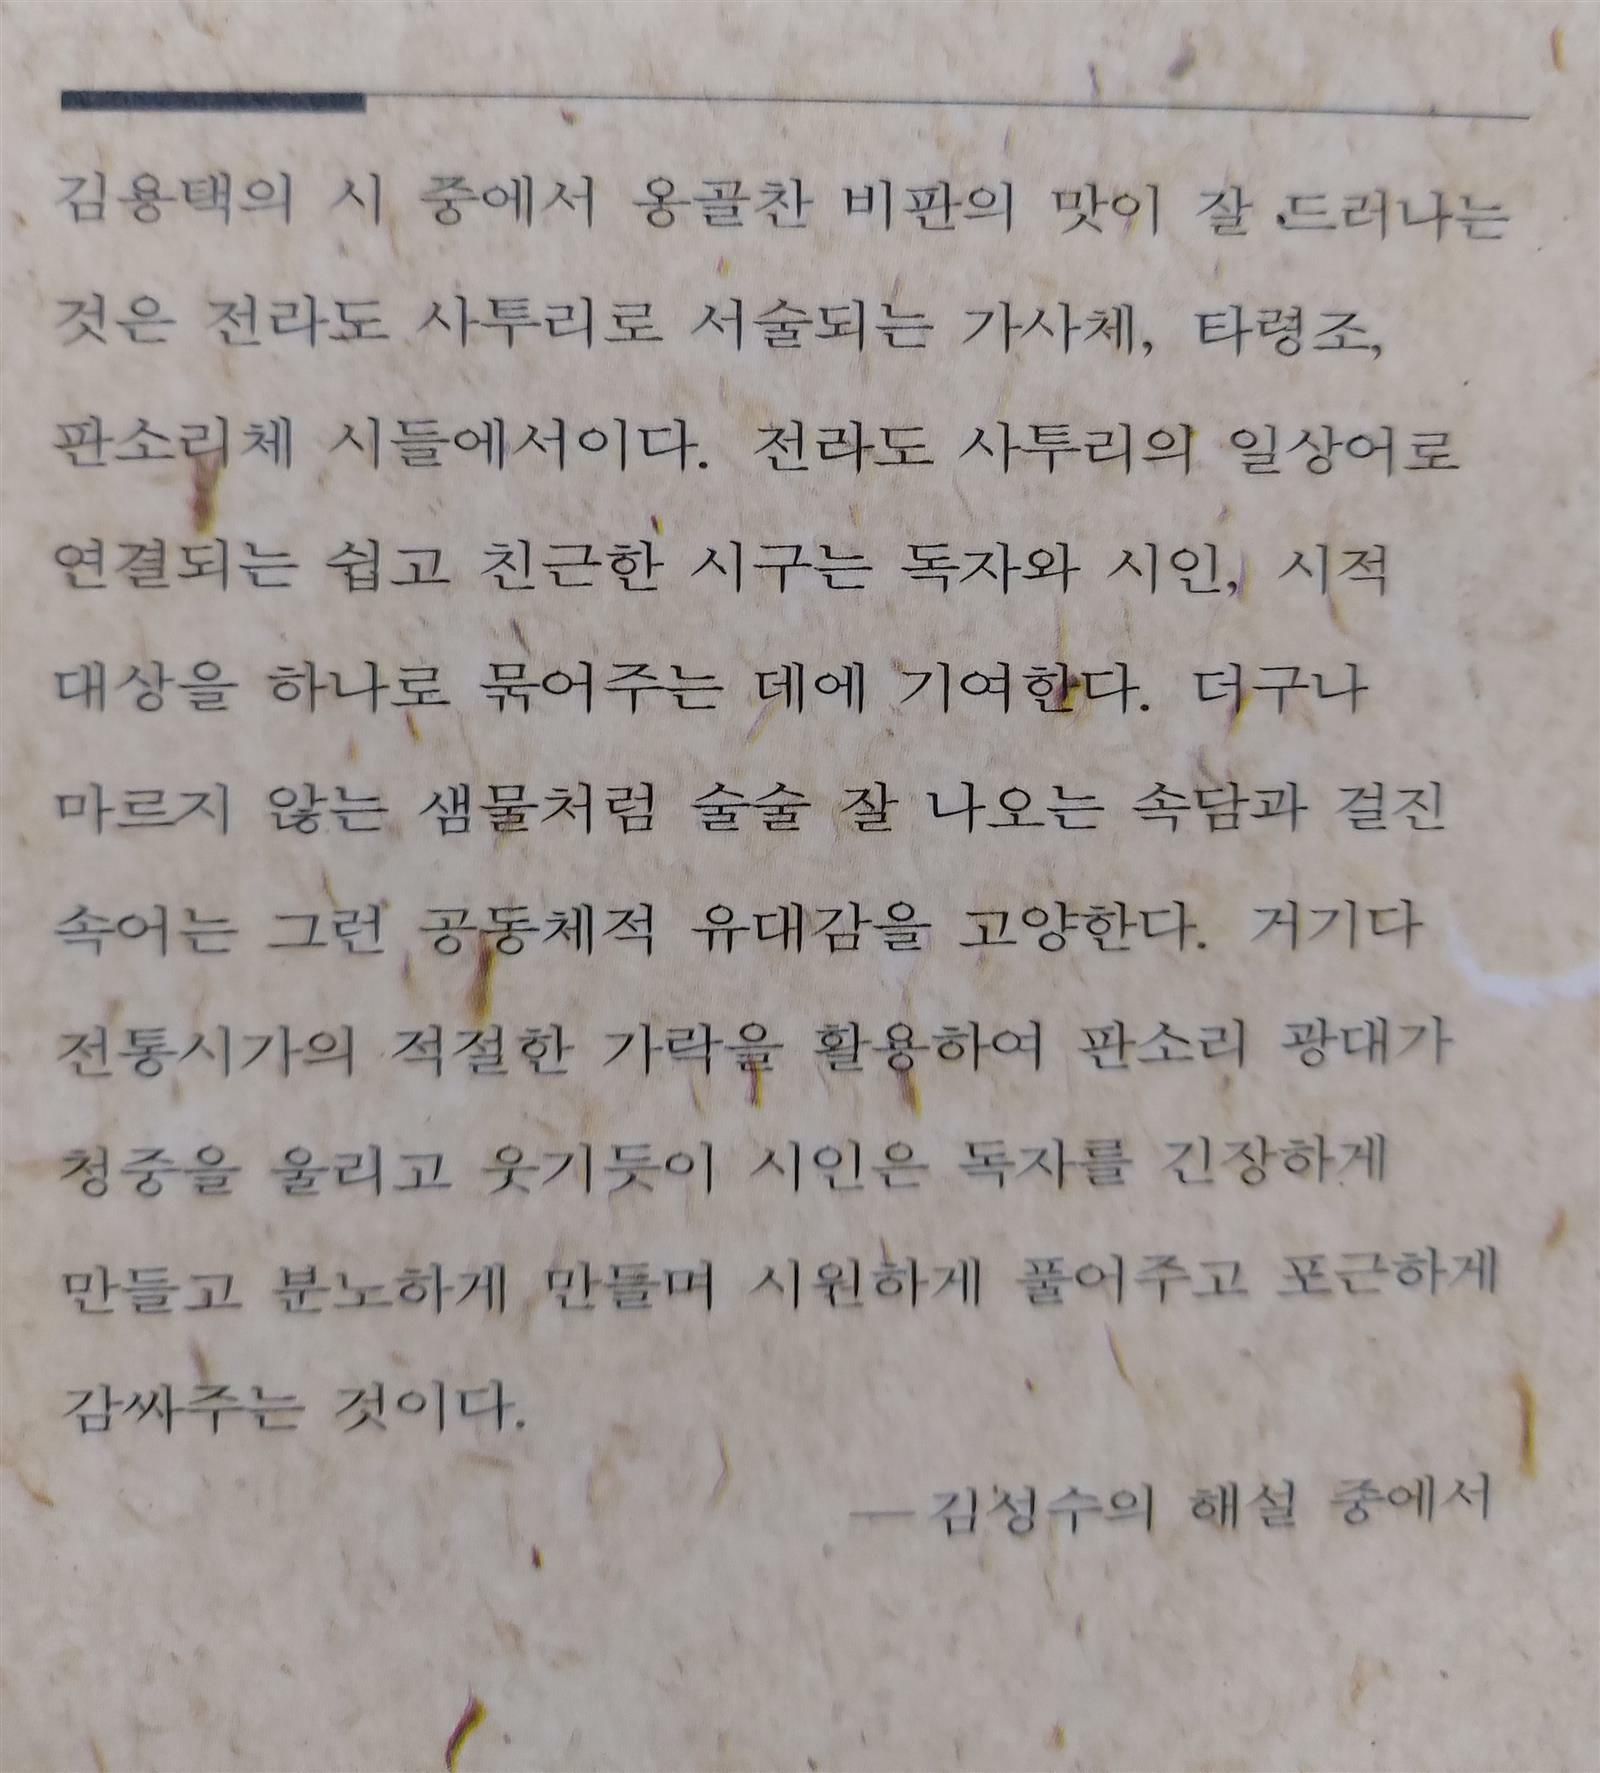 김용택의 시 중에서 옹골찬 비판의 맛이 잘 드러나는
것은 전라도 사투리로 서술되는 가사체, 타령조,
판소리체 시들에서이다. 전라도 사투리의 일상어로
연결되는 쉽고 친근한 시구는 독자와 시인, 시적
대상을 하나로 묶어주는 데에 기여한다. 더구나
마르지 않는 샘물처럼 술술 잘 나오는 속담과 걸진
속어는 그런 공동체적 유대감을 고양한다. 거기다
전통시가의 적절한 가락을 활용하여 판소리 광대가
청중을 울리고 웃기듯이 시인은 독자를 긴장하게
만들고 분노하게 만들며 시원하게 풀어주고 포근하게
감싸주는 것이다.
—김성수의 해설 중에서